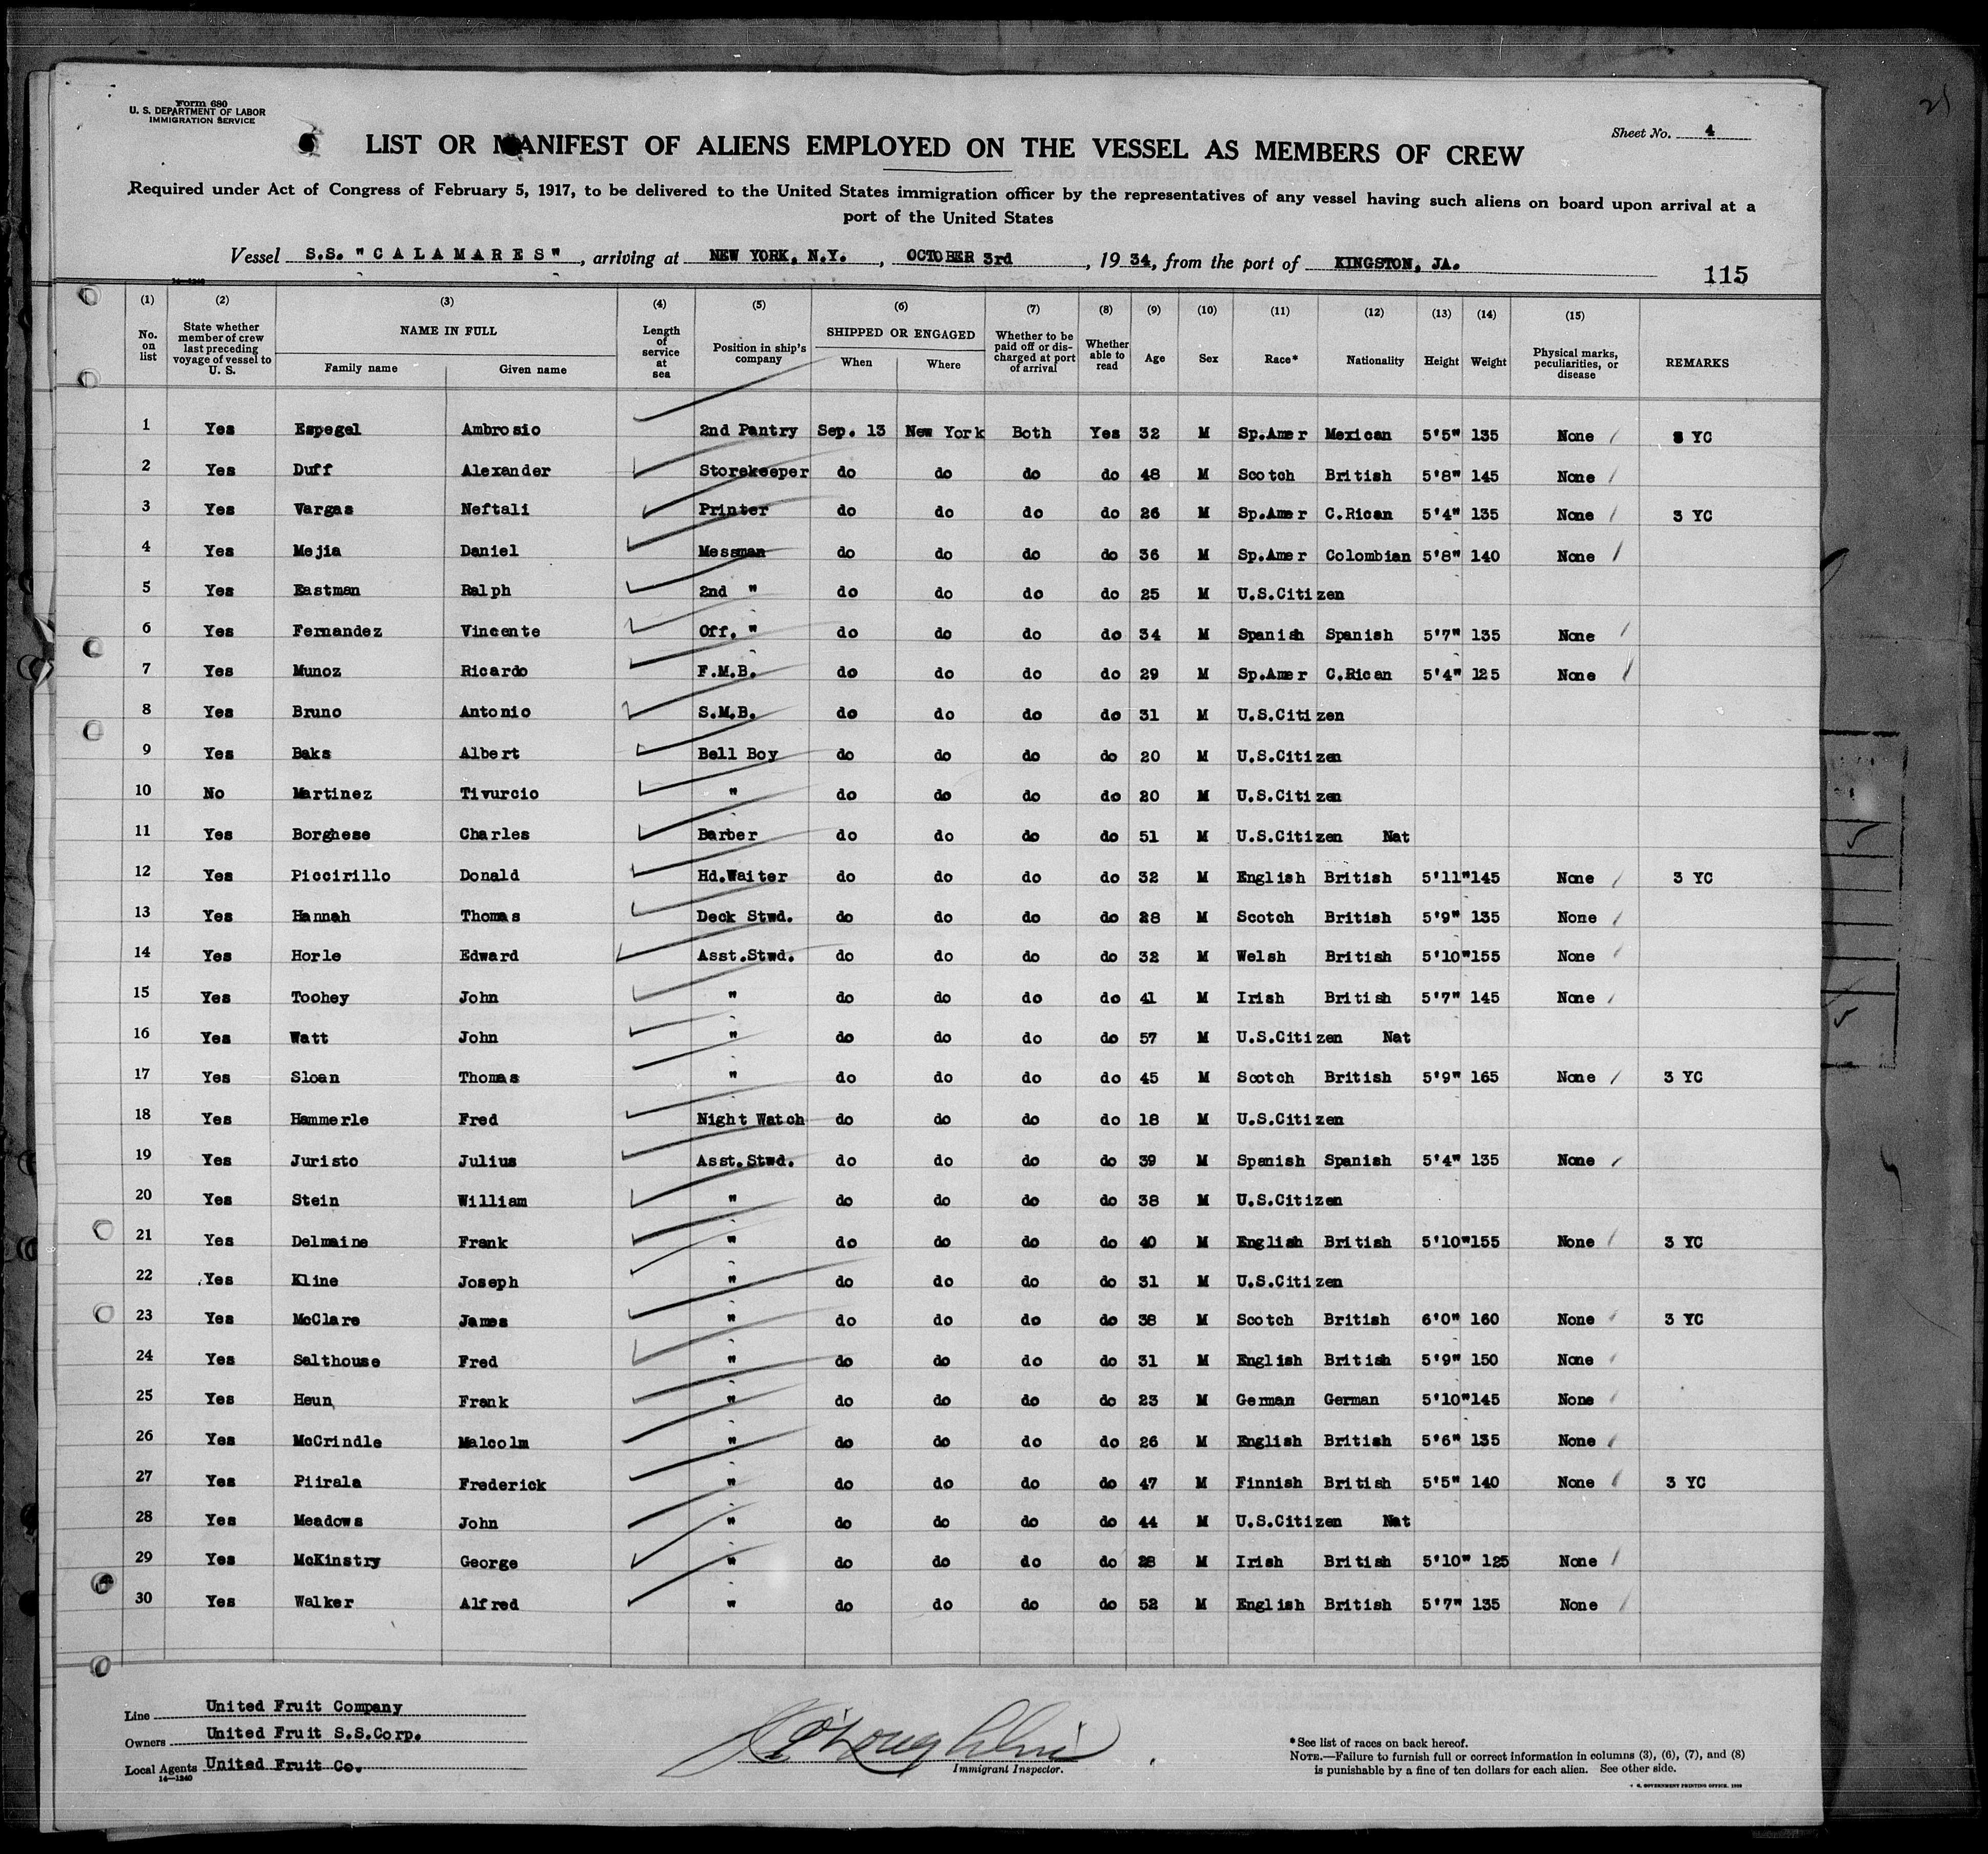 Form 680
U. S. DEPARTMENT OF LABOR
IMMIGRATION SERVICE
Sheet No. 4
LIST OR MANIFEST OF ALIENS EMPLOYED ON THE VESSEL AS MEMBERS OF CREW
Required under Act of Congress of February 5, 1917, to be delivered to the United States immigration officer by the representatives of any vessel having such aliens on board upon arrival at a
port of the United States
Vessel S.S. "CALAMARES", arriving at NEW YORK, N.Y., OCTOBER 3rd, 1934, from the port of KINGSTON, JA.
115
14—1240
(1) (2) (3) (4) (5) (6) (7) (8) (9) (10) (11) (12) (13) (14) (15)
No. on list State whether member of crew last preceding voyage of vessel to U. S. NAME IN FULL Family name Given name Length of service at sea Position in ship's company SHIPPED OR ENGAGED When Where Whether to be paid off or discharged at port of arrival Whether able to read Age Sex Race* Nationality Height Weight Physical marks, peculiarities, or disease REMARKS
1 Yes Espegel Ambrosio 2nd Pantry Sep. 13 New York Both Yes 32 M Sp.Amer Mexican 5'5" 135 None 3 YC
2 Yes Duff Alexander Storekeeper do do do do 48 M Scotch British 5'8" 145 None
3 Yes Vargas Neftali Printer do do do do 26 M Sp.Amer C.Rican 5'4" 135 None 3 YC
4 Yes Mejia Daniel Messman do do do do 36 M Sp.Amer Colombian 5'8" 140 None
5 Yes Eastman Ralph 2nd " do do do do 25 M U.S.Citizen
6 Yes Fernandez Vincente Off. " do do do do 34 M Spanish Spanish 5'7" 135 None
7 Yes Munoz Ricardo F.M.B. do do do do 29 M Sp.Amer C.Rican 5'4" 125 None
8 Yes Bruno Antonio S.M.B. do do do do 31 M U.S.Citizen
9 Yes Baks Albert Bell Boy do do do do 20 M U.S.Citizen
10 No Martinez Tivurcio " do do do do 20 M U.S.Citizen
11 Yes Borghese Charles Barber do do do do 51 M U.S.Citizen Nat
12 Yes Piccirillo Donald Hd.Waiter do do do do 32 M English British 5'11" 145 None 3 YC
13 Yes Hannah Thomas Deck Stwd. do do do do 28 M Scotch British 5'9" 135 None
14 Yes Horle Edward Asst.Stwd. do do do do 32 M Welsh British 5'10" 155 None
15 Yes Toohey John " do do do do 41 M Irish British 5'7" 145 None
16 Yes Watt John " do do do do 57 M U.S.Citizen Nat
17 Yes Sloan Thomas " do do do do 45 M Scotch British 5'9" 165 None 3 YC
18 Yes Hammerle Fred Night Watch do do do do 18 M U.S.Citizen
19 Yes Juristo Julius Asst.Stwd. do do do do 39 M Spanish Spanish 5'4" 135 None
20 Yes Stein William " do do do do 38 M U.S.Citizen
21 Yes Delmaine Frank " do do do do 40 M English British 5'10" 155 None 3 YC
22 Yes Kline Joseph " do do do do 31 M U.S.Citizen
23 Yes McClare James " do do do do 38 M Scotch British 6'0" 160 None 3 YC
24 Yes Salthouse Fred " do do do do 31 M English British 5'9" 150 None
25 Yes Heun Frank " do do do do 23 M German German 5'10" 145 None
26 Yes McCrindle Malcolm " do do do do 26 M English British 5'6" 135 None
27 Yes Piirala Frederick " do do do do 47 M Finnish British 5'5" 140 None 3 YC
28 Yes Meadows John " do do do do 44 M U.S.Citizen Nat
29 Yes McKinstry George " do do do do 28 M Irish British 5'10" 125 None
30 Yes Walker Alfred " do do do do 52 M English British 5'7" 135 None
Line United Fruit Company
Owners United Fruit S.S.Corp.
Local Agents United Fruit Co.
14—1240
Immigrant Inspector.
*See list of races on back hereof.
NOTE.—Failure to furnish full or correct information in columns (3), (6), (7), and (8)
is punishable by a fine of ten dollars for each alien. See other side.